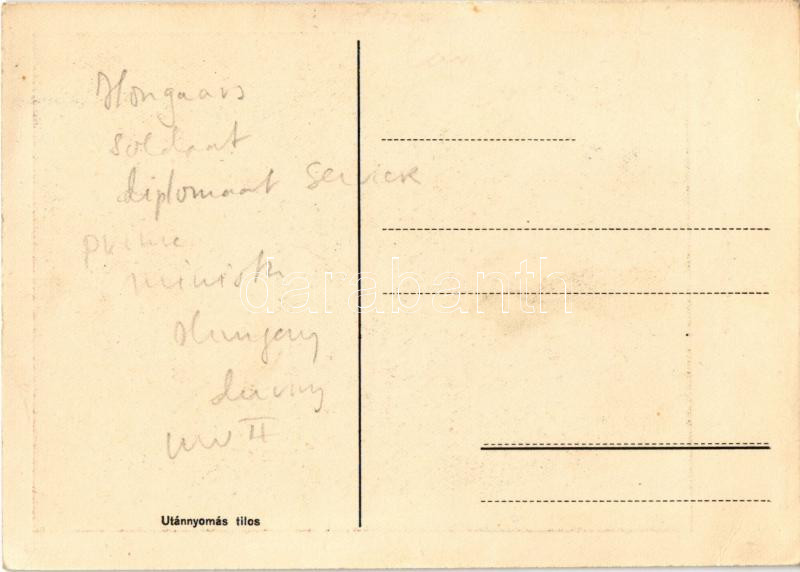 Hongaars
soldaat
diplomaat service
prime
minister
Hungary
during
WW II
darabanth
Utánnyomás tilos